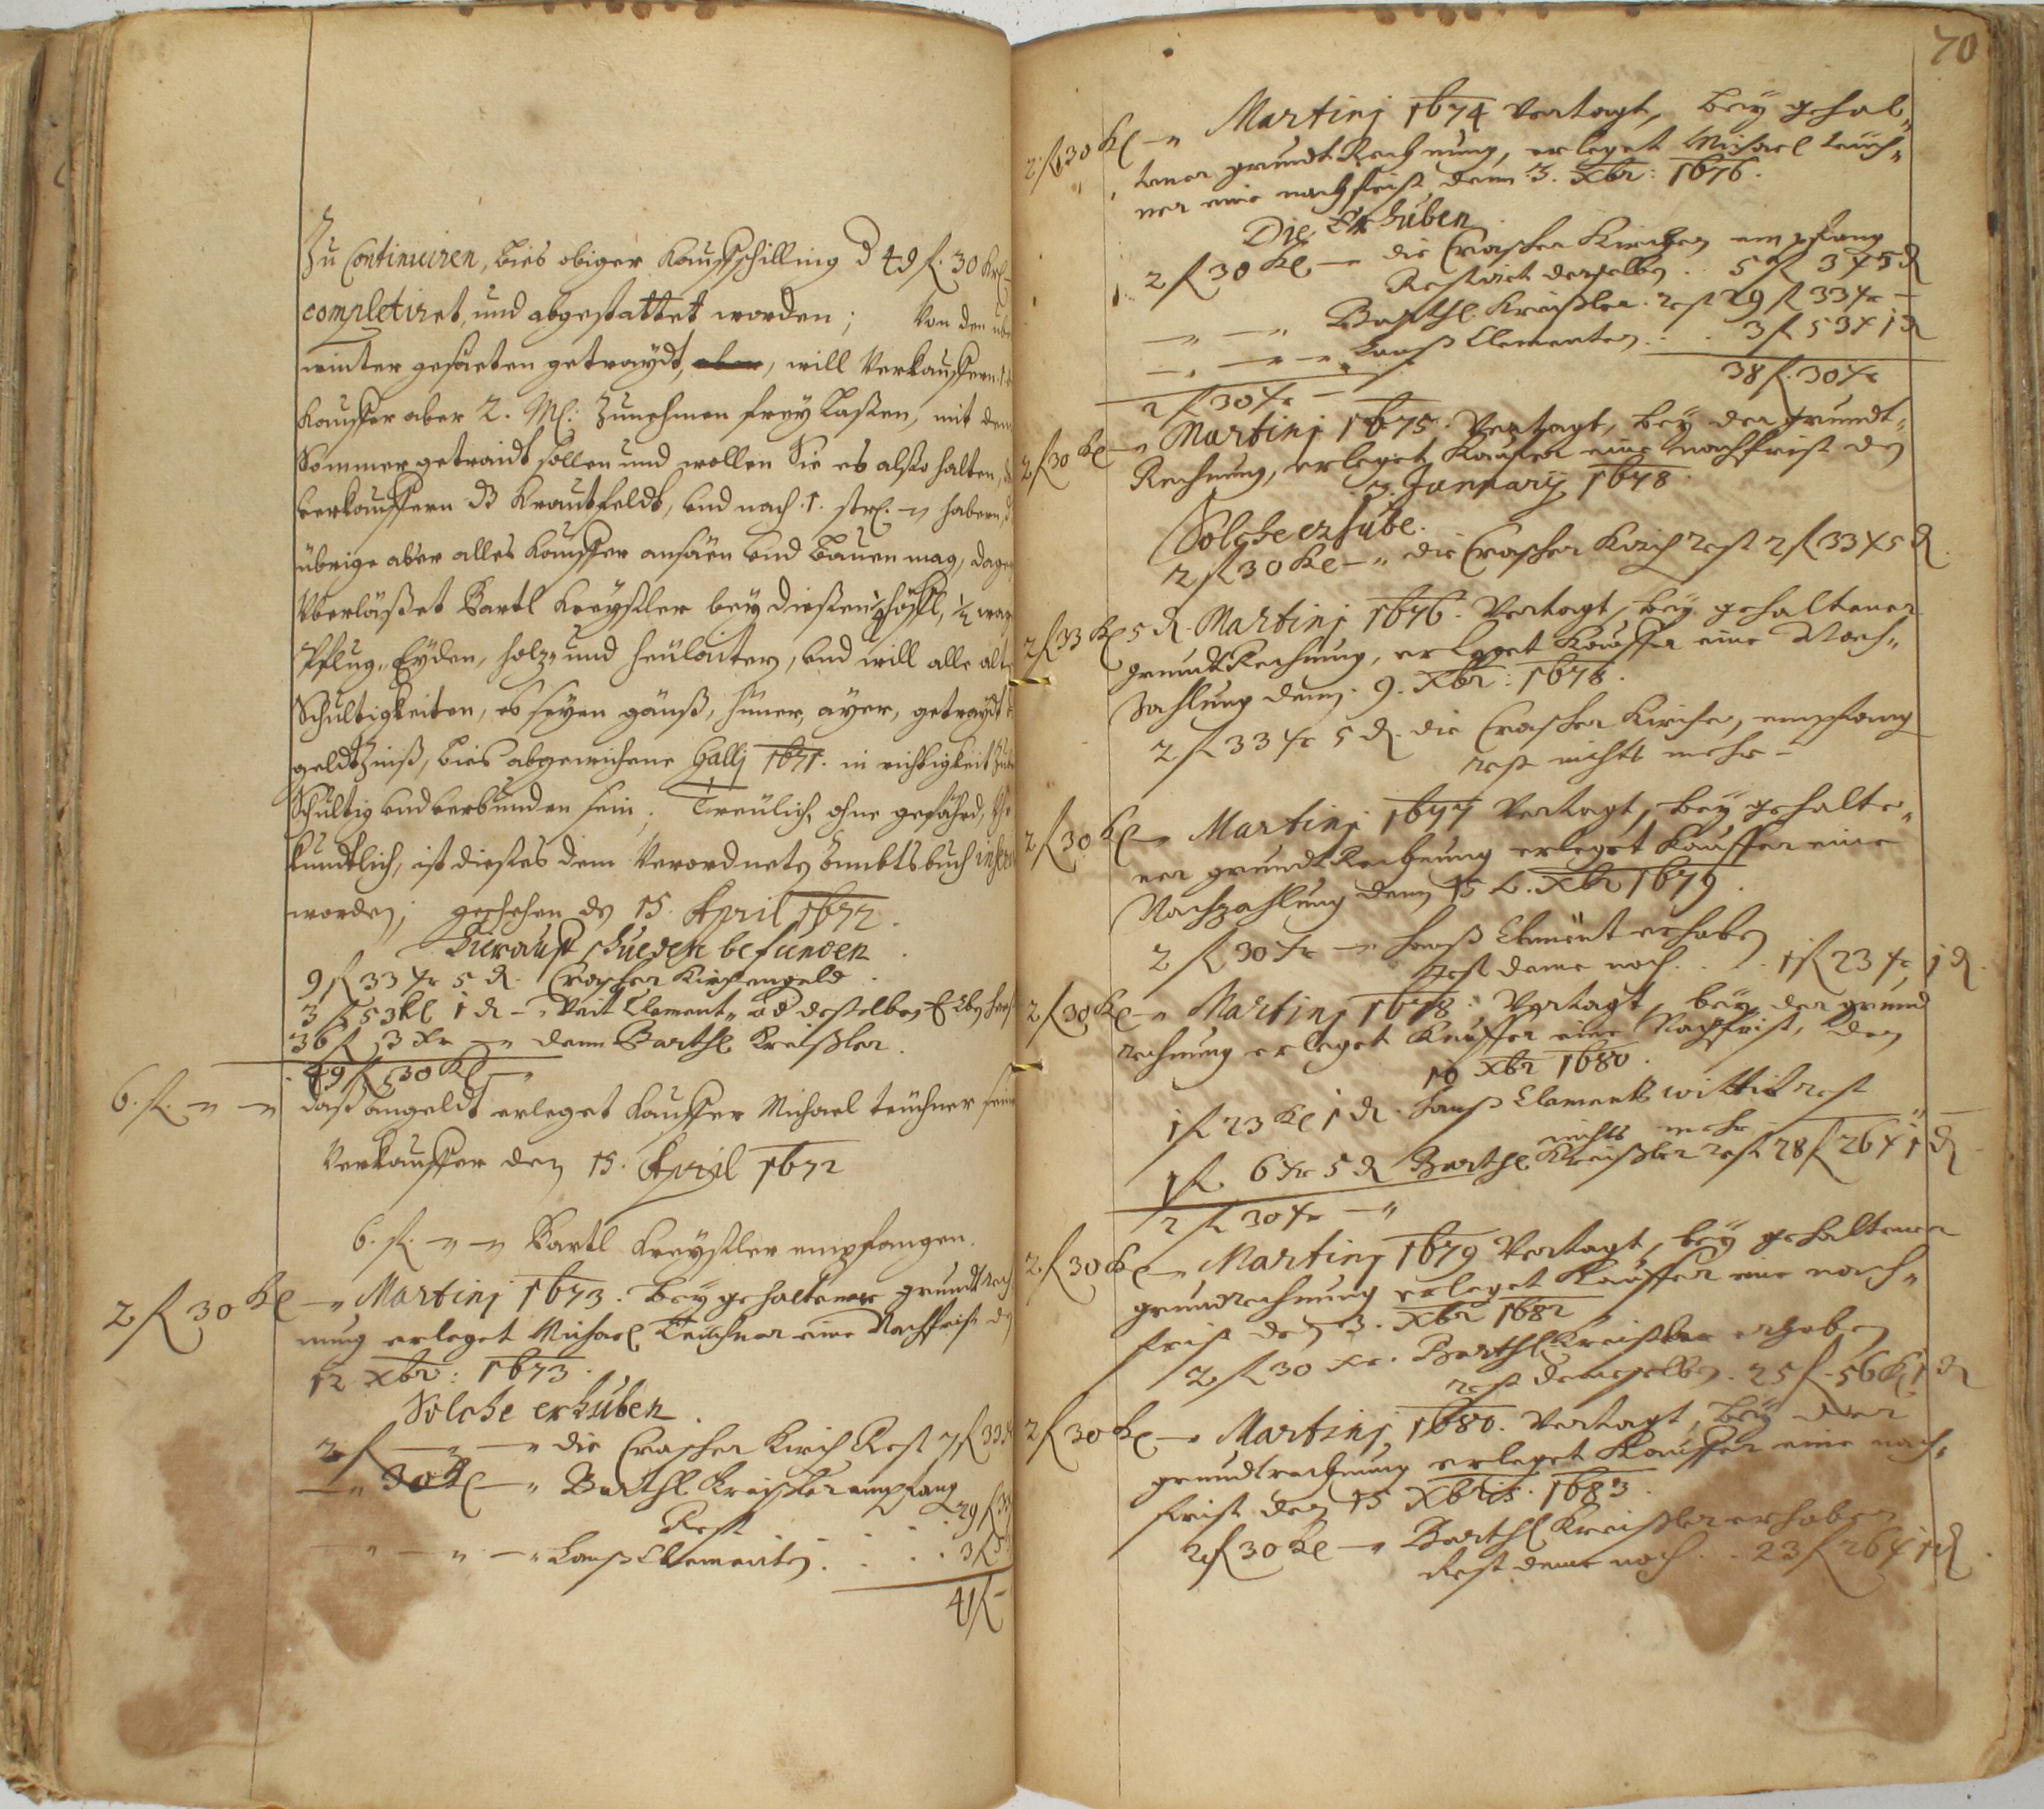 Zu Continuiren, bies obiger Kauffschilling d 49 f. 30 Krl
completiret, und abgestattet worden; Von den
winter gesäeten getraydt, will Verkauffern
Kauffer aber 2. Zunehmen frey laßen, mit dem
Sommergetraidt sollen und wollen Sie es alßo halten,
verkauffern Krautfeldt, und nach .1. str. habern,
übrige aber alles Kauffer ansäen und bauen mag,
Uberläßet Bartl Kreyßler bey dießen höffl, ½
Pflug, Eyden, holz- und heüleiter, und will alle alte
Schultigkeiten, es seyen gänß, hüner, ayer, getraydt
geldtzinß, bies abgewichene Gallj 1671. in richtigkeit
Schultig und verbunden sein; Treülich, ohne gefährd,
kundtlich, ist dießes dem Verordneten ambtsbuch
worden; geschehen dn 15. April 1672.
Hierauff schueden befunden
9 f 33 xr 5 d. Crascher Kirchengeld
3 f 53 Kl 1 d Veit Clement, od deßelben
36 f 3 xr denn Barthl Kreißler.
49 f 30 Kl
6. f. daß angeldt erleget Kauffer Michael teüchner
Verkauffer den 15. April 1672
6. f. Bartl Kreyßler empfangen.
2 f 30 Kl Martinj 1673. bey gehaltener grundt
nung erleget Michael Teüchner eine Nachfrist
12 Xbr: 1673.
Solche erhuben.
2 f die Crascher Kirch Rest 7 f 33
30 Kl Barthl Kreißler empfang
Rest 29 f 33
Hanß Clementen. 3 f
41 f
70
2 f 30 Kl Martinj 1674 Vertagt, bey gehal-
tener grundt Rechnung, erleget Michael teüch-
ner eine nachfrist denn .3. Xbr: 1676.
Die Erhuben
2 f 30 Kl die Crascher Kirchen empfang
Restiret derselben. 5 f 3 x 5 d
Barthl Kreißler. rest 29 f 33 xr
Hanß Clementen . . 3 f 53 x 1 d
2 f 30 xr 38 f. 30 xr
2 f 30 Kl Martinj 1675. Vertagt, bey der grundt-
Rechnung, erleget Kaufer eine nachfrist den
January 1678.
Solche erhube.
2 f 30 Kl die Crascher Kirch rest 2 f 33 x 5 d
2 f 33 Kl 5 d. Martinj 1676. Vertagt, bey gehaltener
grundt Rechnung, erleget Kauffer eine Nach-
Zahlung denn. 9. Xbr: 1678.
2 f 33 xr 5 d. die Crascher Kirche, empfang
rest nichts mehr
2 f 30 Kl Martinj 1677 Vertagt, bey gehalte-
ner grundt Rechnung erleget Kauffer eine
Nachzahlung denn 15 Xbr 1679.
2 f 30 xr Hanß Clement erhaben
Rest deme noch. . . 1 f 23 xr 1 d.
2 f 30 Kl Martinj 1678. Vertagt, bey der grund
rechnung erleget Kauffer eine Nachfrist, den
10 Xbr 1680.
1 f 23 Kl 1 d. Hanß Clements wittib rest
nichts mehr
1 f. 6 xr 5 d Barthl Kreißler rest 28 f 26 x 1 d
2 f 30 xr
2 f 30 Kl Martinj 1679 Vertagt, bey gehaltener
grundrechnung erleget Kauffer eine nach-
frist den 3. Xbr 1682
2 f 30 xr. Barthl Kreißler erhoben
rest demselben. 25 f. 56 Kl 1 d
2 f 30 Kl Martinj 1680. Vertagt, bey der
grundtrechnung erleget Kauffer eine nach-
frist den 15 Xbris. 1683.
2 f 30 Kl Barthl Kreißler erhoben
Rest deme noch . . 23 f 26 x 1 d